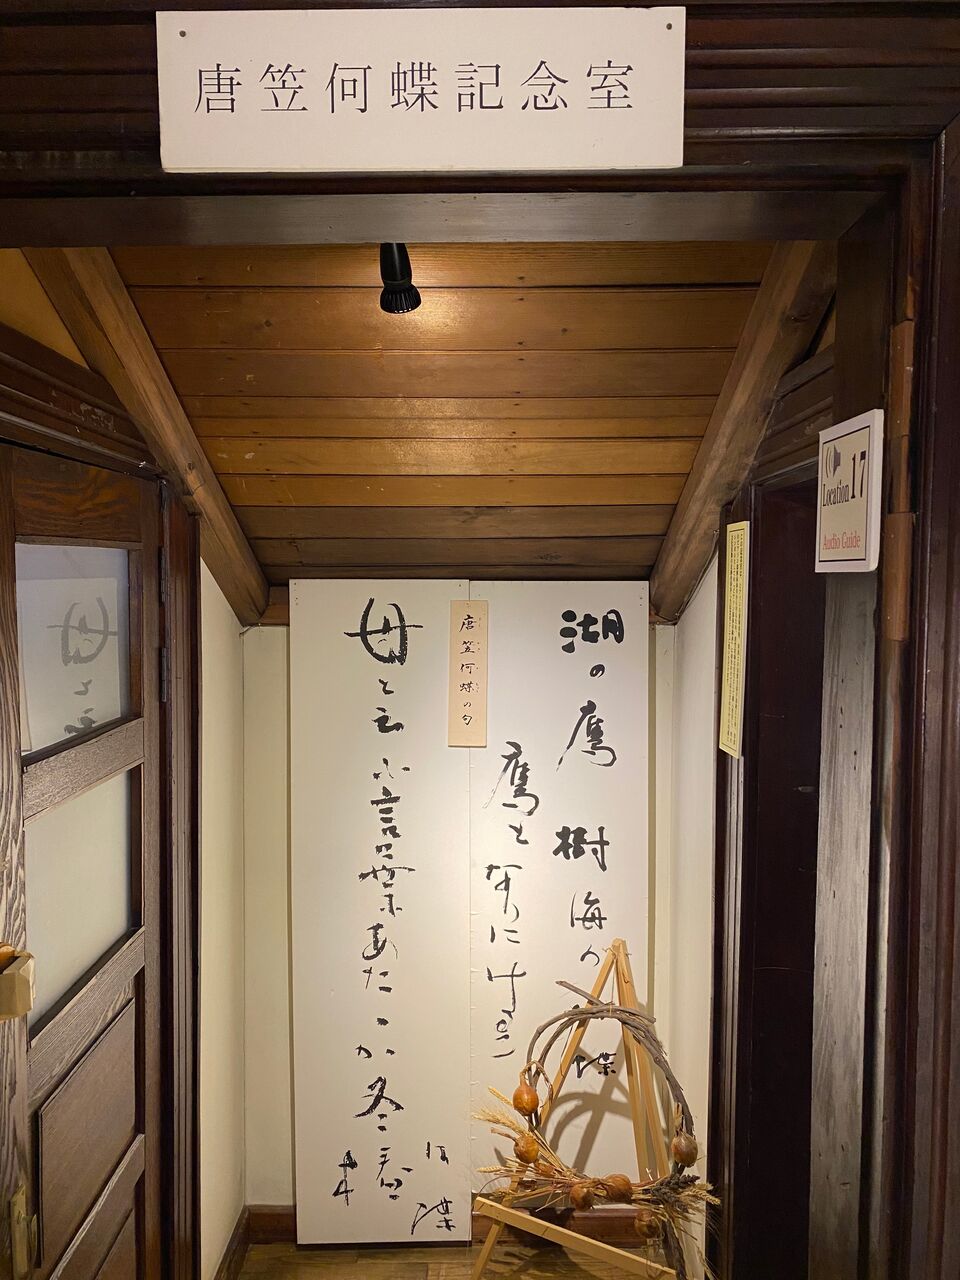 唐笠何蝶記念室
Location 17
Audio Guide
唐笠何蝶の句
湖の鷹樹海の
鷹となりにけり
蝶
母と云ふ言葉あたゝか冬椿
何蝶